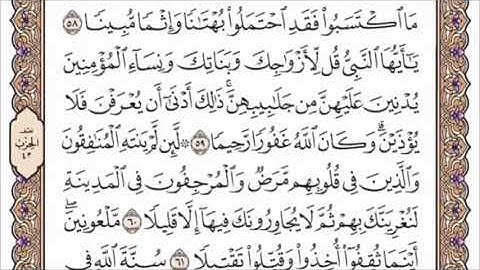 مَا ٱكۡتَسَبُواْ فَقَدِ ٱحۡتَمَلُواْ بُهۡتَٰنٗا وَإِثۡمٗا مُّبِينٗا ٥٨
يَٰٓأَيُّهَا ٱلنَّبِيُّ قُل لِّأَزۡوَٰجِكَ وَبَنَاتِكَ وَنِسَآءِ ٱلۡمُؤۡمِنِينَ
يُدۡنِينَ عَلَيۡهِنَّ مِن جَلَٰبِيبِهِنَّۚ ذَٰلِكَ أَدۡنَىٰٓ أَن يُعۡرَفۡنَ فَلَا
يُؤۡذَيۡنَۗ وَكَانَ ٱللَّهُ غَفُورٗا رَّحِيمٗا ٥٩ ۞ لَّئِن لَّمۡ يَنتَهِ ٱلۡمُنَٰفِقُونَ
وَٱلَّذِينَ فِي قُلُوبِهِم مَّرَضٞ وَٱلۡمُرۡجِفُونَ فِي ٱلۡمَدِينَةِ
لَنُغۡرِيَنَّكَ بِهِمۡ ثُمَّ لَا يُجَاوِرُونَكَ فِيهَآ إِلَّا قَلِيلٗا ٦٠ مَّلۡعُونِينَۖ
أَيۡنَمَا ثُقِفُوٓاْ أُخِذُواْ وَقُتِّلُواْ تَقۡتِيلٗا ٦١ سُنَّةَ ٱللَّهِ فِي
نصف
الحزب
٤٣